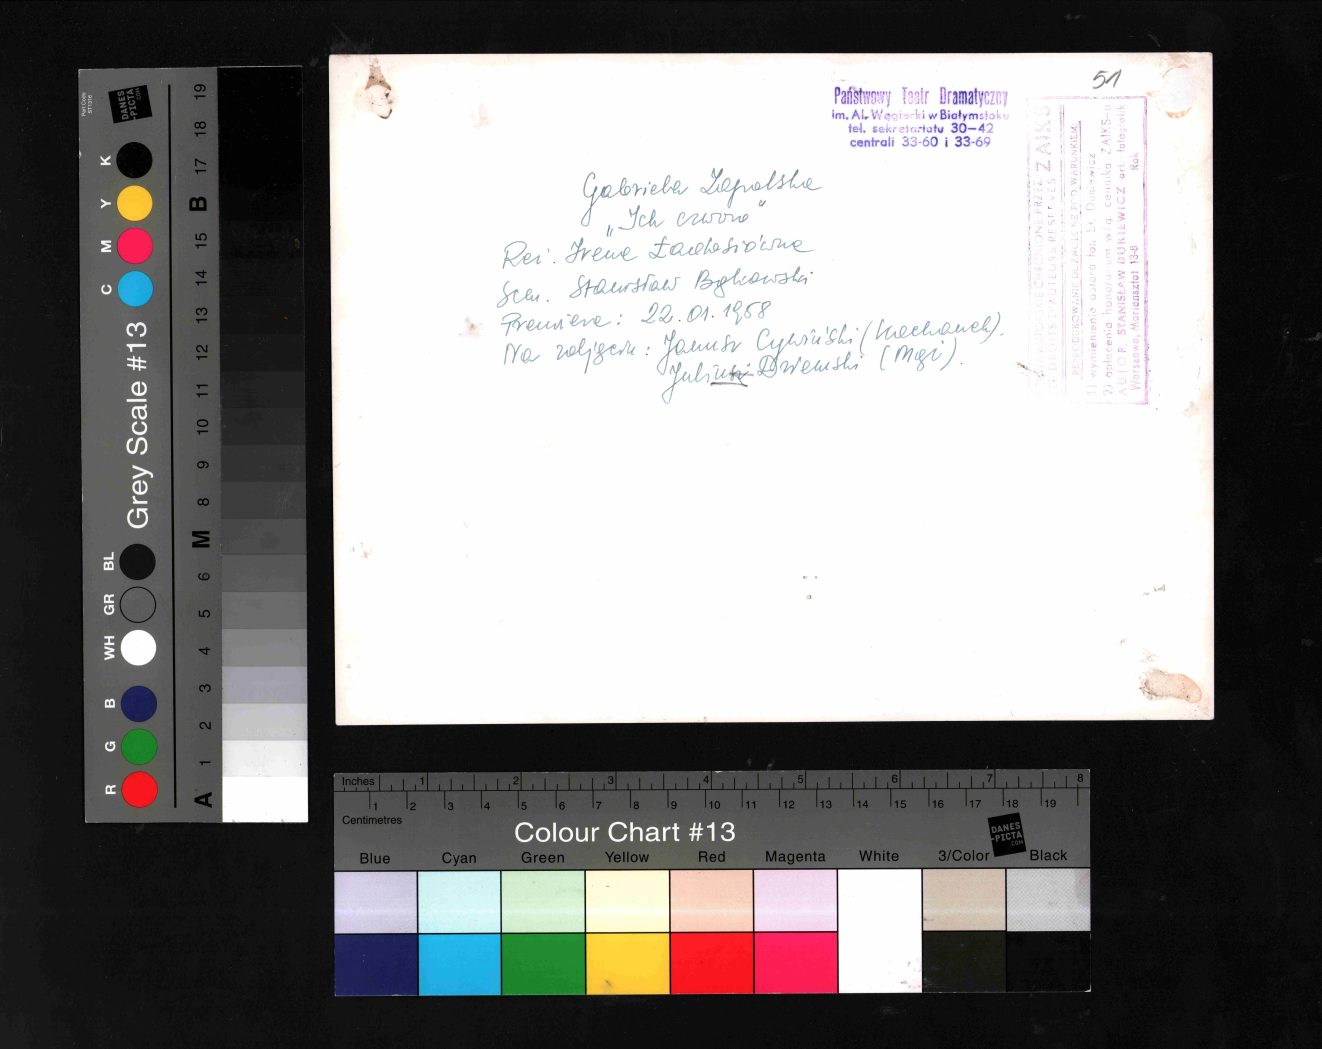 51
Państwowy Teatr Dramatyczny
im. Al. Węgierki w Białymstoku
tel. sekretariatu 30—42
centrali 33-60 i 33-69
Gabriela Zapolska
„Ich czworo"
Reż. Irena Ładosiówna
Scen. Stanisław Bąkowski
Premiera: 22.01.1958
Na zdjęciu: Janusz Cywiński (Kochanek).
Juliusz Dziemski (Mąż).
CHRONIONE PRZEZ ZAIKS
DROITS D'AUTEURS RESERVES
REPRODUKOWANIE DOZWOLONE POD WARUNKIEM:
1) wymienienia autora fot. St.
2) opłacenia honorarium wg cennika ZAIKS-u
AUTOR STANISŁAW art. fotografik
Warszawa, Mariensztat 13-8 Rok
Grey Scale #13
DANES
-PICTA
.COM
K
Y
M
C
BL
GR
WH
B
G
R
A 1 2 3 4 5 6 M 8 9 10 11 12 13 14 15 B 17 18 19
Inches 1 2 3 4 5 6 7 8
1 2 3 4 5 6 7 8 9 10 11 12 13 14 15 16 17 18 19
Centimetres
Colour Chart #13
DANES
-PICTA
.COM
Blue Cyan Green Yellow Red Magenta White 3/Color Black